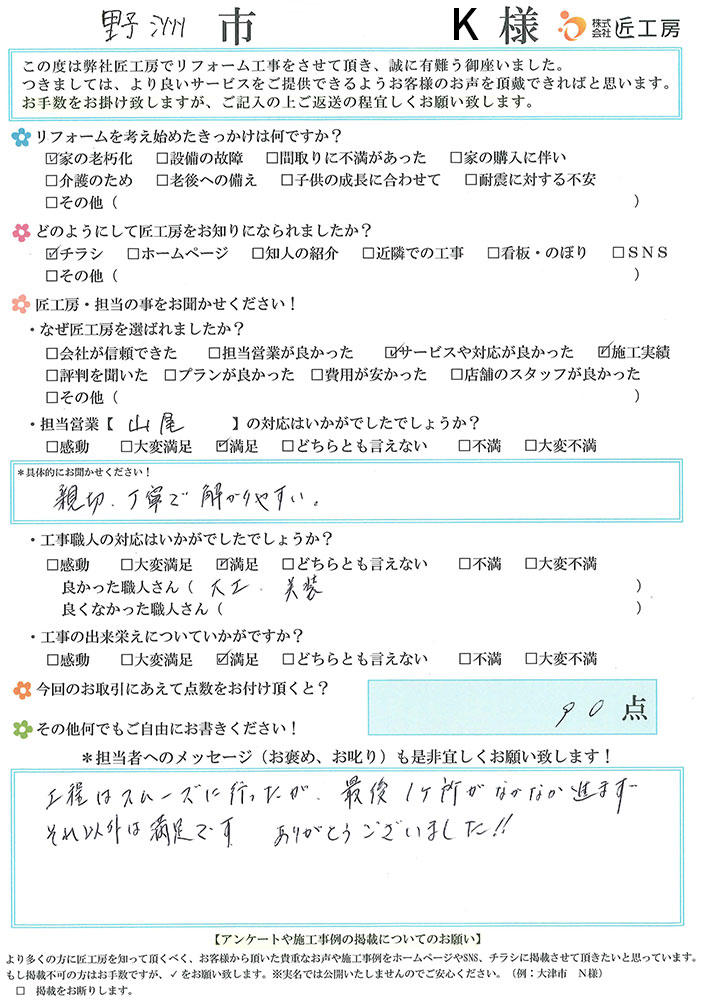 野洲 市 K 様 株式会社 匠工房
この度は弊社匠工房でリフォーム工事をさせて頂き、誠に有難う御座いました。
つきましては、より良いサービスをご提供できるようお客様のお声を頂戴できればと思います。
お手数をお掛け致しますが、ご記入の上ご返送の程宜しくお願い致します。
リフォームを考え始めたきっかけは何ですか?
☑家の老朽化 □設備の故障 □間取りに不満があった □家の購入に伴い
□介護のため □老後への備え □子供の成長に合わせて □耐震に対する不安
□その他( )
どのようにして匠工房をお知りになられましたか?
☑チラシ □ホームページ □知人の紹介 □近隣での工事 □看板・のぼり □SNS
□その他( )
匠工房・担当の事をお聞かせください!
・なぜ匠工房を選ばれましたか?
□会社が信頼できた □担当営業が良かった ☑サービスや対応が良かった ☑施工実績
□評判を聞いた □プランが良かった □費用が安かった □店舗のスタッフが良かった
□その他( )
・担当営業【 山尾 】の対応はいかがでしたでしょうか?
□感動 □大変満足 ☑満足 □どちらとも言えない □不満 □大変不満
*具体的にお聞かせください!
親切、丁寧で解かりやすい。
・工事職人の対応はいかがでしたでしょうか?
□感動 □大変満足 ☑満足 □どちらとも言えない □不満 □大変不満
良かった職人さん( 大工・美装 )
良くなかった職人さん( )
・工事の出来栄えについていかがですか?
□感動 □大変満足 ☑満足 □どちらとも言えない □不満 □大変不満
今回のお取引にあえて点数をお付け頂くと?
90 点
その他何でもご自由にお書きください!
*担当者へのメッセージ(お褒め、お叱り)も是非宜しくお願い致します!
工程はスムーズに行ったが、最後1ケ所がなかなか進まず
それ以外は満足です ありがとうございました!!
【アンケートや施工事例の掲載についてのお願い】
より多くの方に匠工房を知って頂くべく、お客様から頂いた貴重なお声や施工事例をホームページやSNS、チラシに掲載させて頂きたいと思っています。
もし掲載不可の方はお手数ですが、✓をお願い致します。※実名では公開いたしませんのでご安心ください。(例:大津市 N様)
□ 掲載をお断りします。